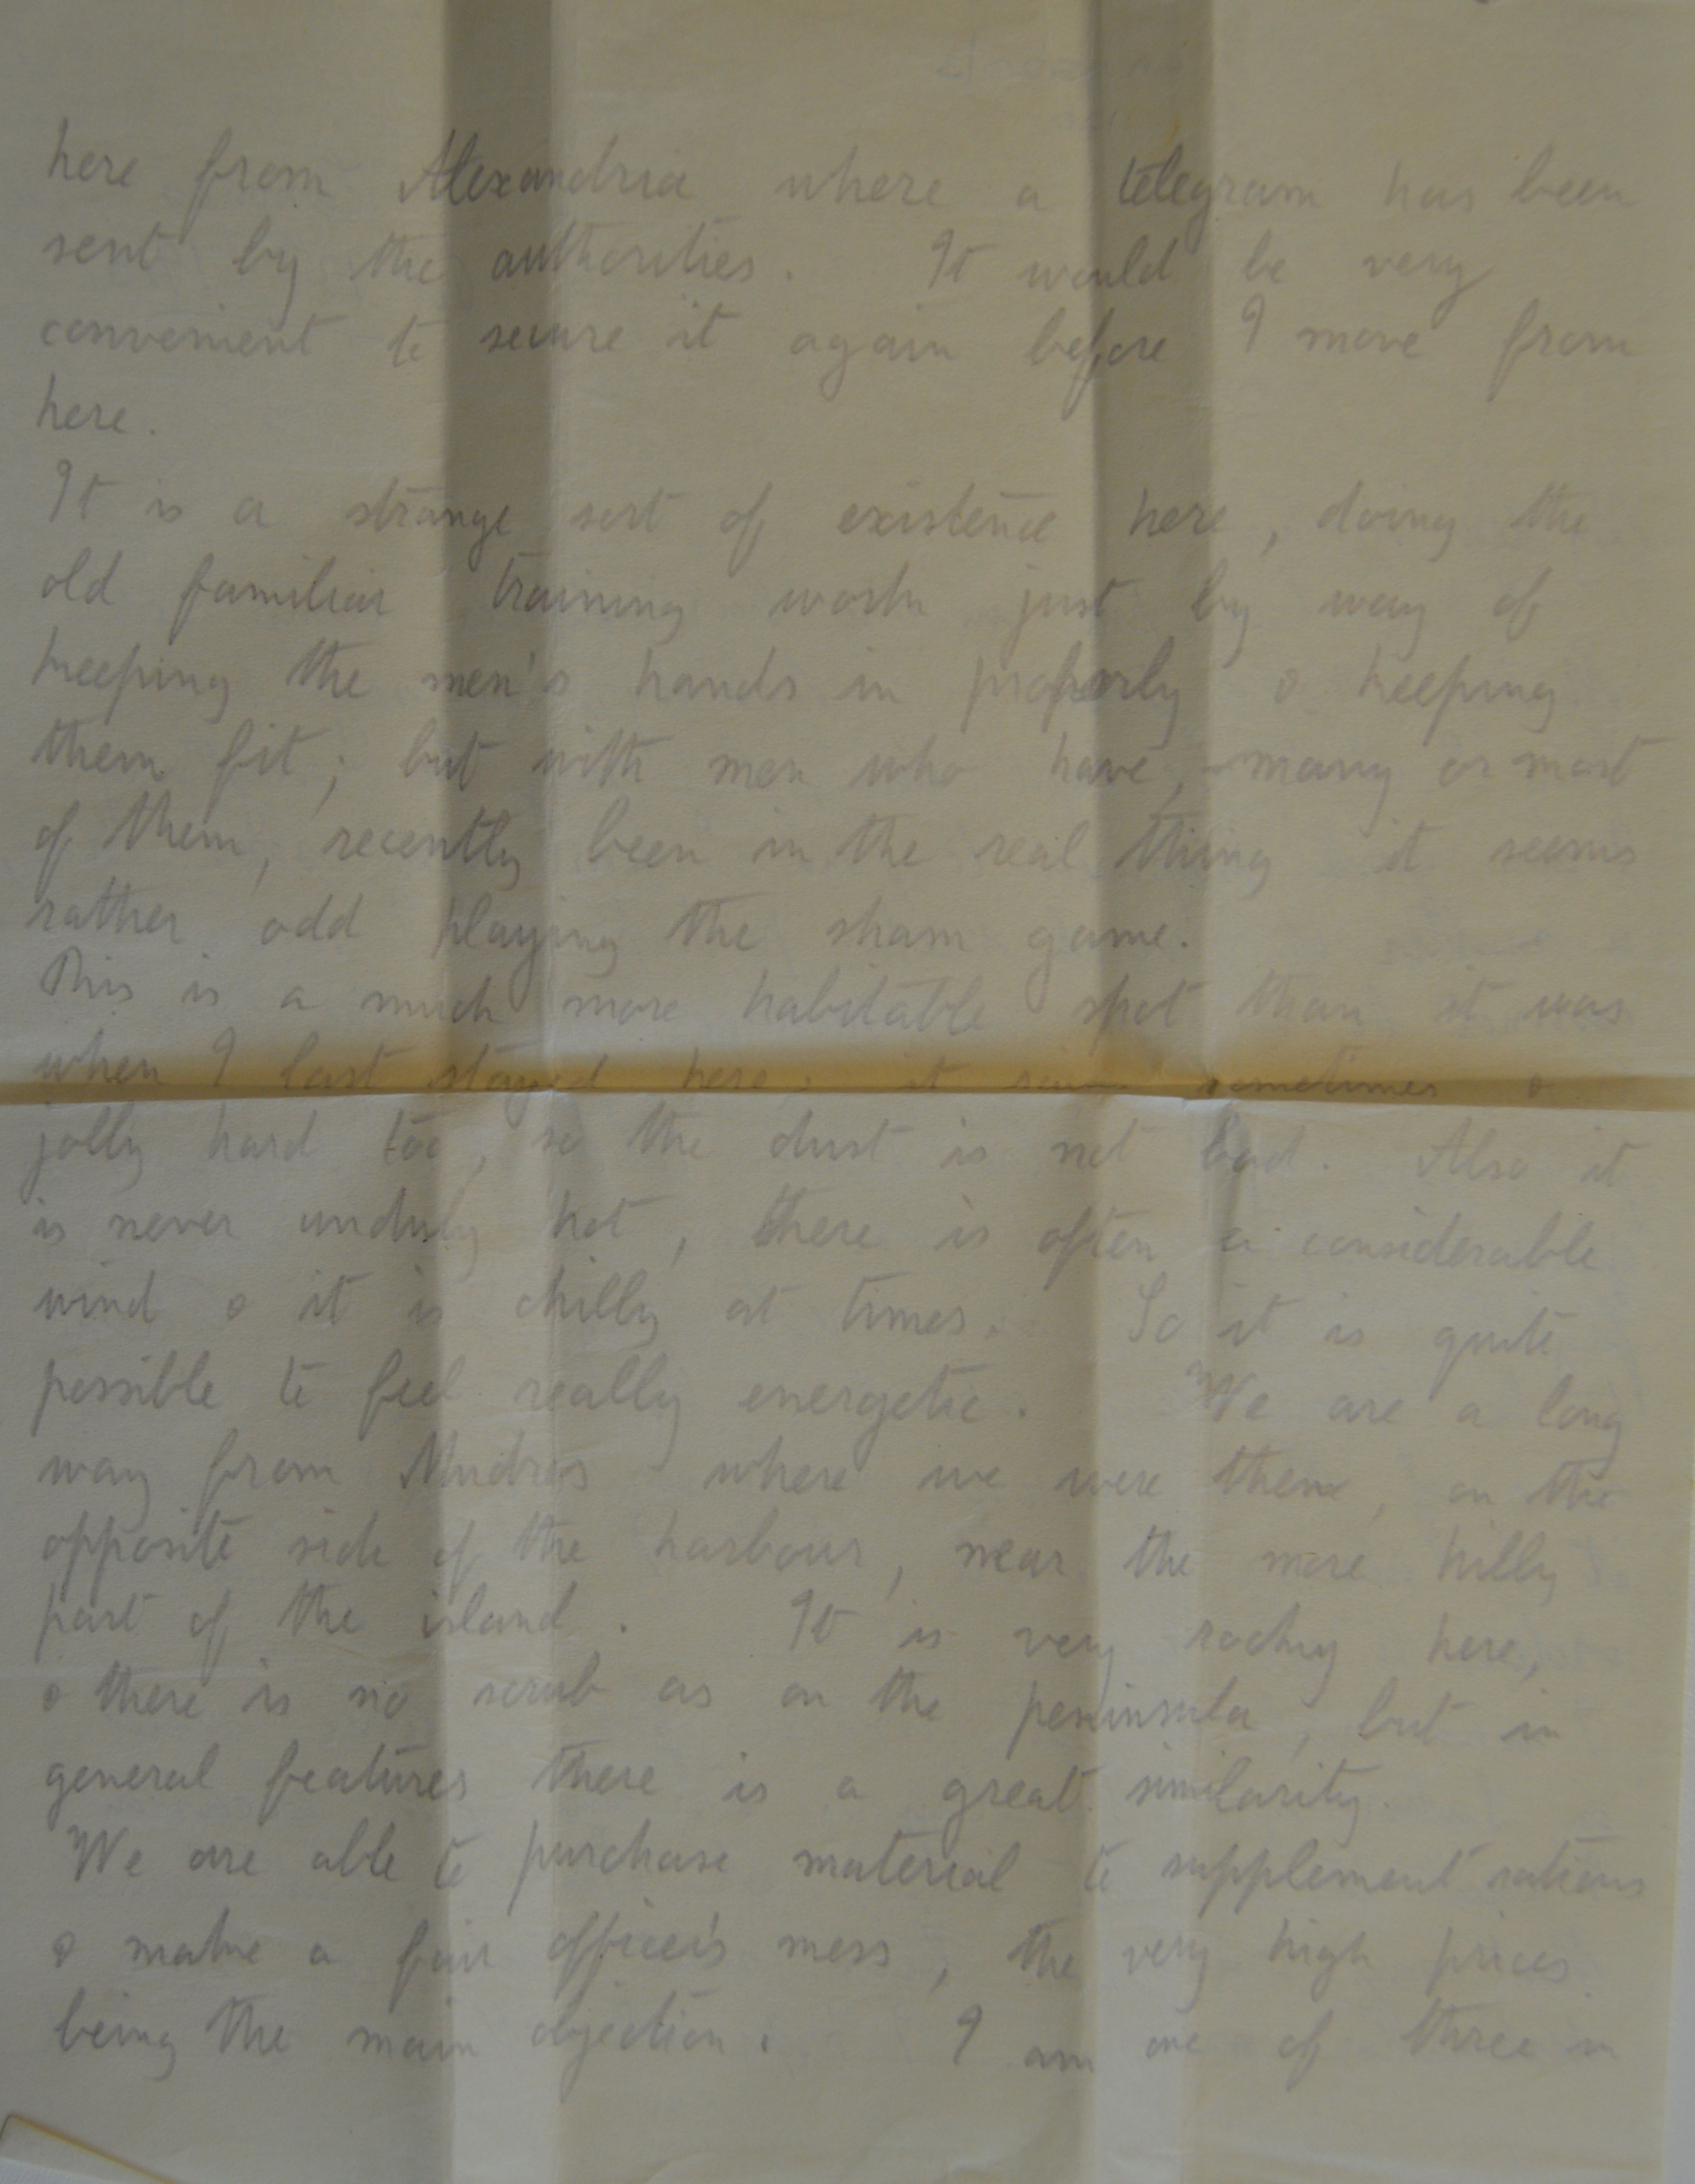 here from Alexandria where a telegram has been
sent by the authorities. It would be very
convenient to secure it again before I move from
here.
It is a strange sort of existence here, doing the
old familiar training work just by way of
keeping the men's hands in properly & keeping
them fit; but with men who have, many or most
of them, recently been in the real thing it seems
rather odd playing the sham game.
This is a much more habitable spot than it was
when I last stayed here; it rains sometimes &
jolly hard too, so the dust is not bad. Also it
is never unduly hot, there is often a considerable
wind & it is chilly at times. So it is quite
possible to feel really energetic. We are a long
way from Mudros where we were then, on the
opposite side of the harbour, near the more hilly
part of the island. It is very rocky here,
& there is no scrub as on the peninsula, but in
general features there is a great similarity.
We are able to purchase material to supplement rations
& make a fair officer's mess, the very high prices
being the main objection. I am one of three in